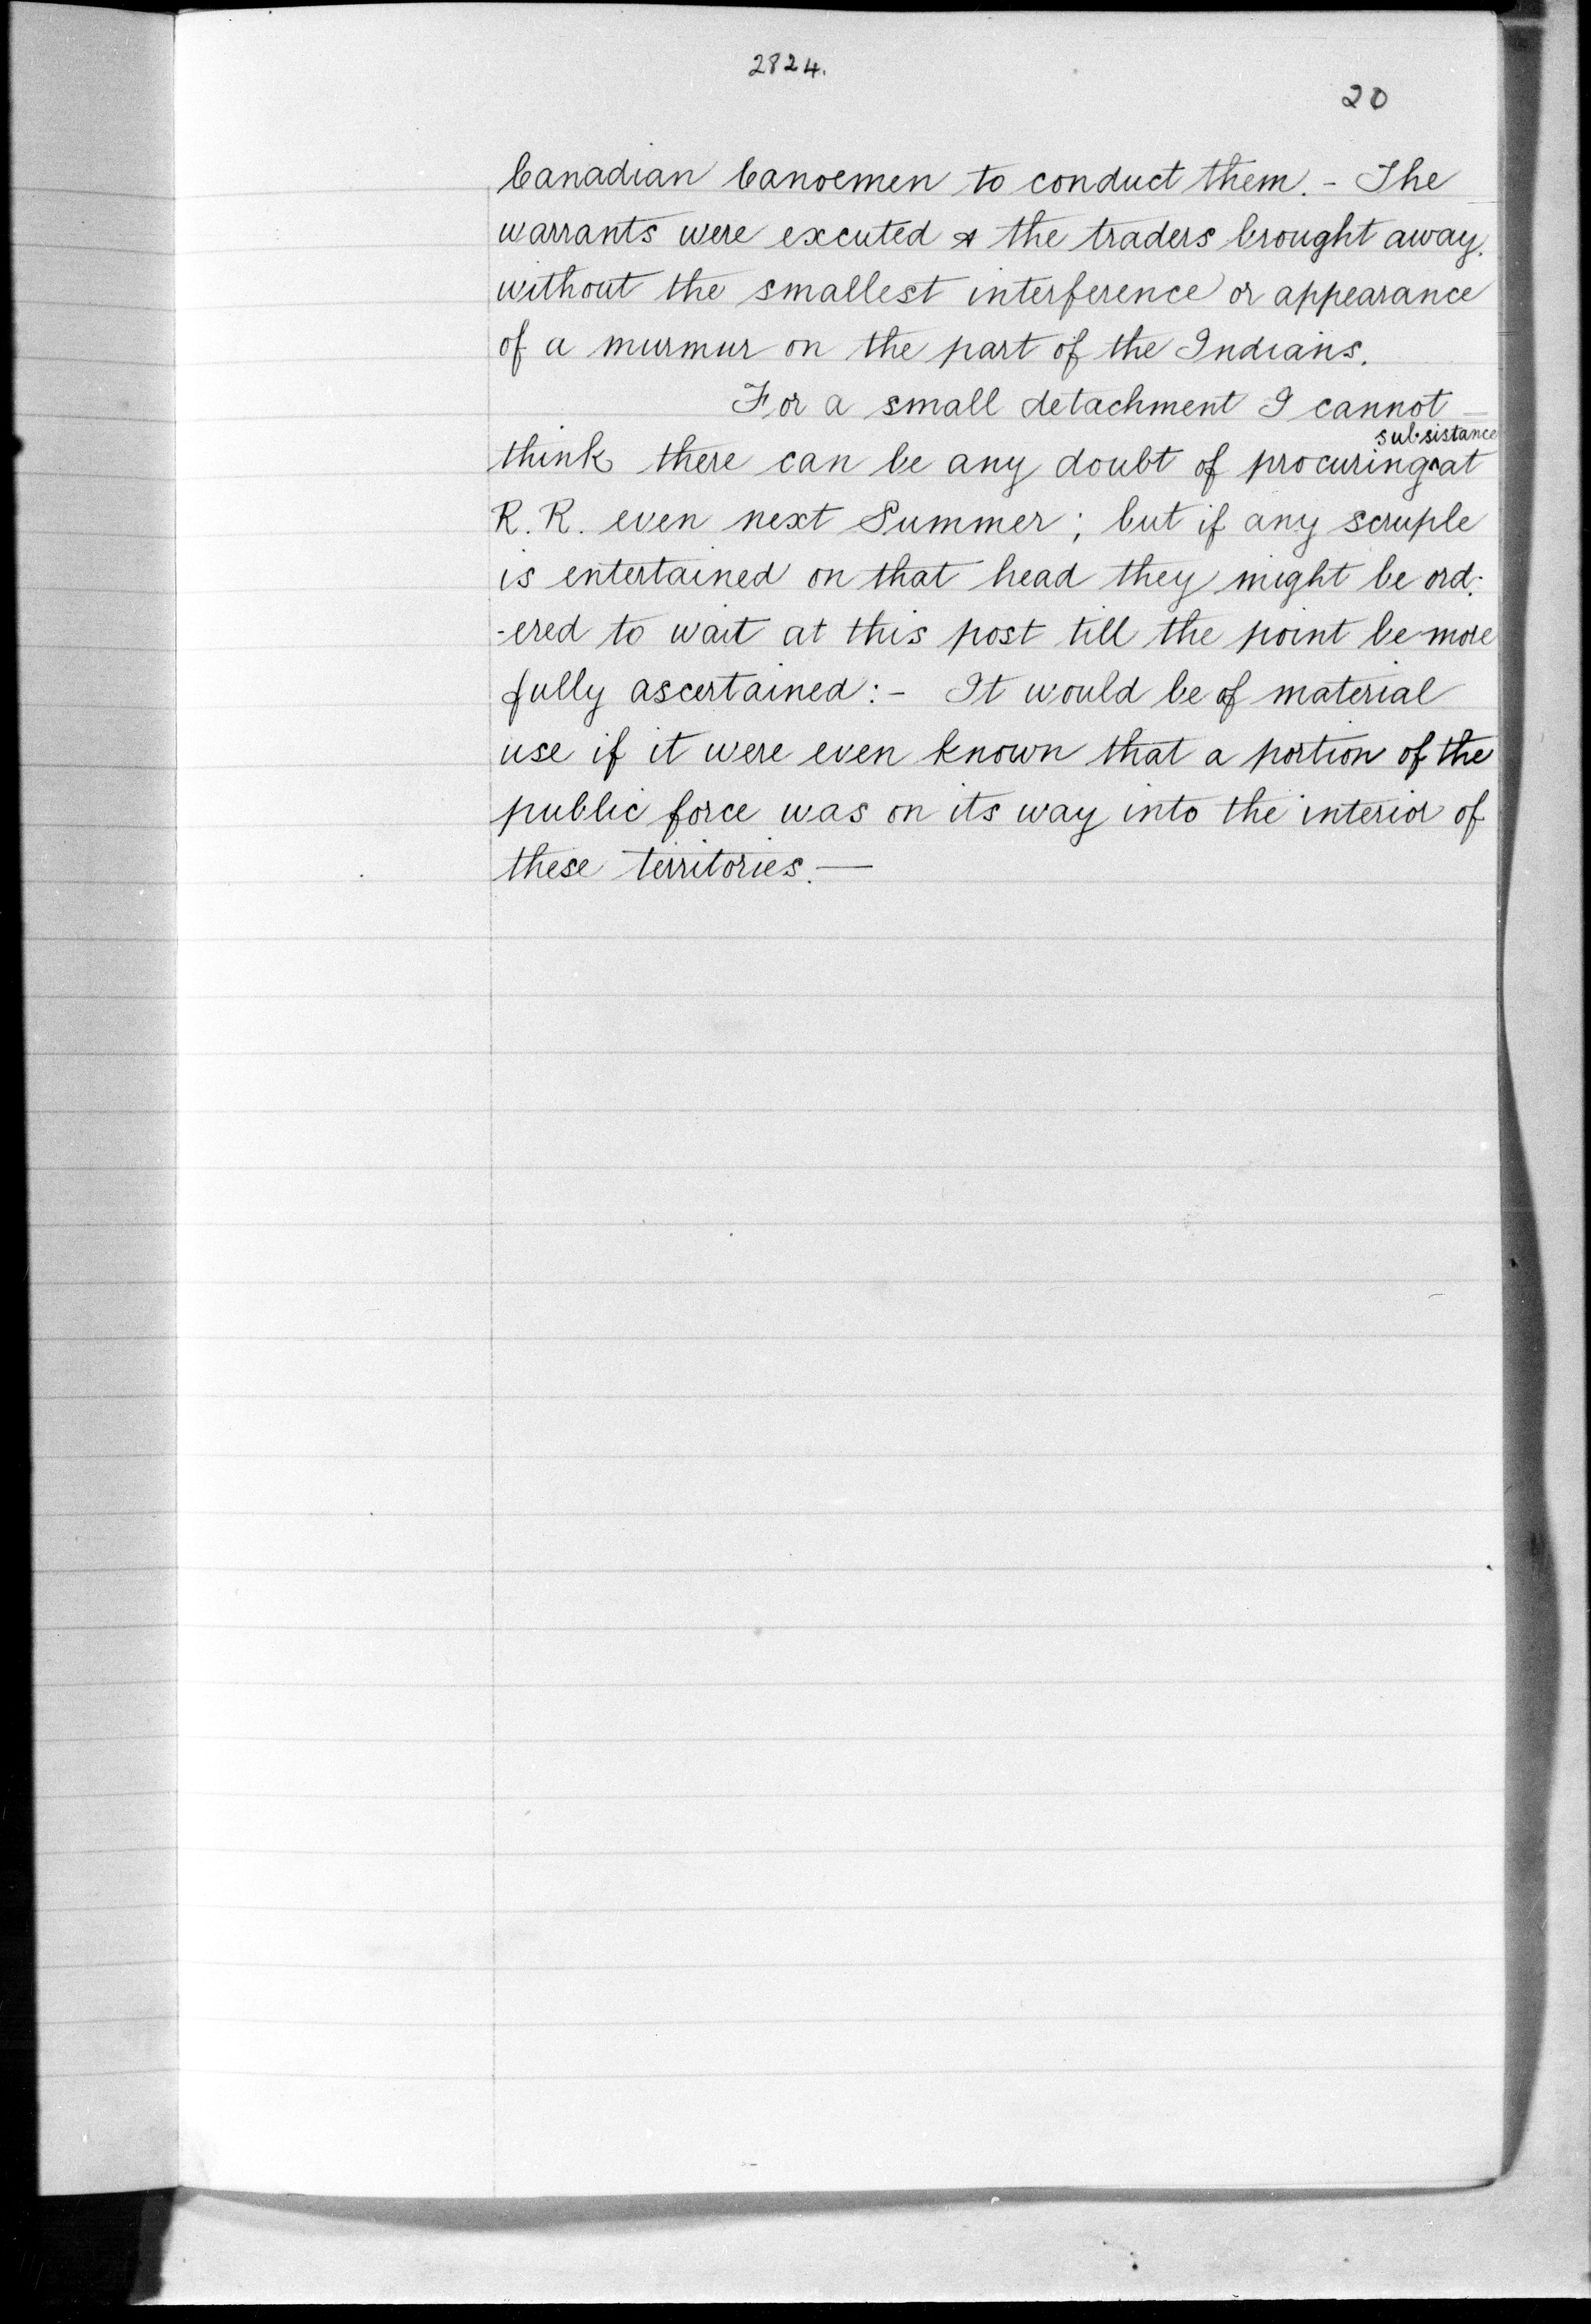 2824.
20
Canadian Canoemen to conduct them. - The
warrants were excuted & the traders brought away.
without the smallest interference or appearance
of a murmur on the part of the Indians.
For a small detachment I cannot
subsistance
think there can be any doubt of procuring ^ at
R. R. even next Summer; but if any scruple
is entertained on that head they might be ord-
-ered to wait at this post till the point be more
fully ascertained:- It would be of material
use if it were even known that a portion of the
public force was on its way into the interior of
these territories.—